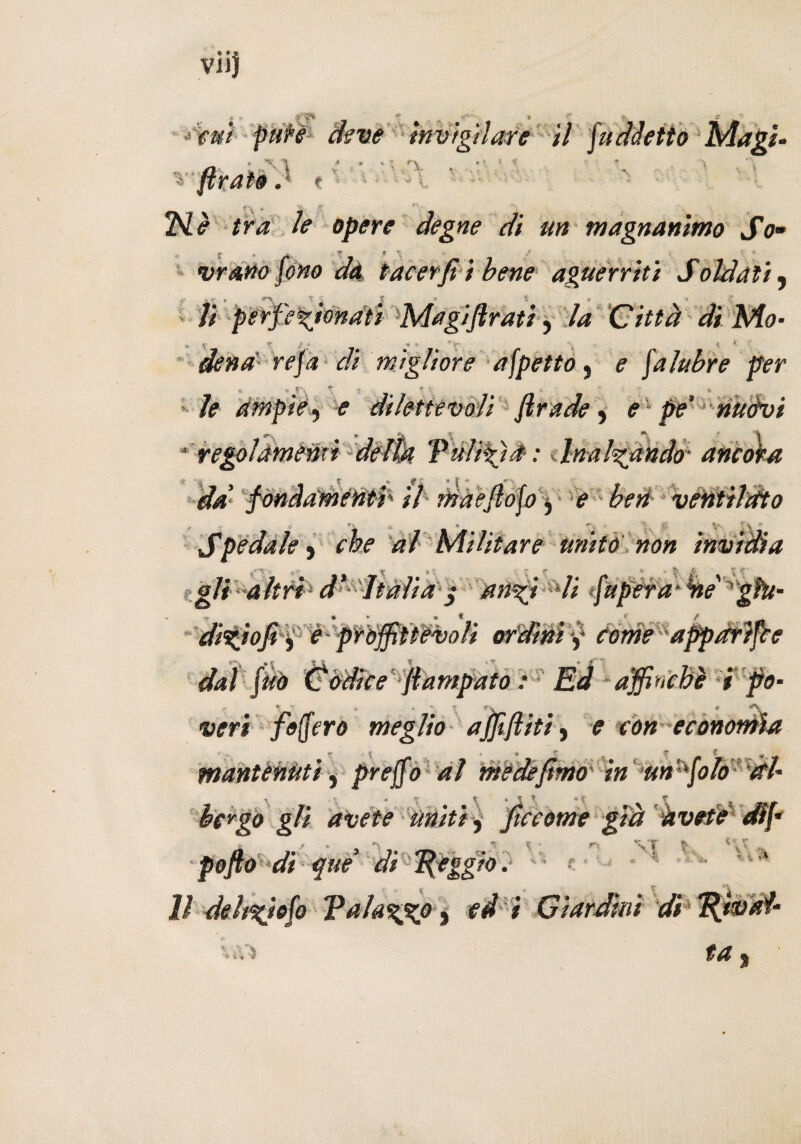 viij
cui pure deve invigilare il ſuddetto Magi-
ſtrato.
Nè tra le opere degne di un magnanimo So-
vrano ſono da tacerſi i bene aguerriti Soldati,
li perfezionati Magiſtrati, la Città di Mo-
dena reſa di migliore aſpetto, e ſalubre per
le ampie, e dilettevoli ſtrade, e pe' nuovi
regolamenti della Pulizìa: Inalzando ancora
da' fondamenti il maeſtoſo, e ben ventilato
Spedale, che al Militare unito non invidia
gli altri d' Italia; anzi li ſupera ne' giu-
dizioſi, e proffittevoli ordini, come appariſce
dal ſuo Codice ſtampato: Ed affinchè i po-
veri foſſero meglio aſſiſtiti, e con economìa
mantenuti, preſſo al medeſimo in un ſolo al-
bergo gli avete uniti, ſiccome già avete diſ-
poſto di que' di Reggio.
Il delizioſo Palazzo, ed i Giardini di Rival-
ta,